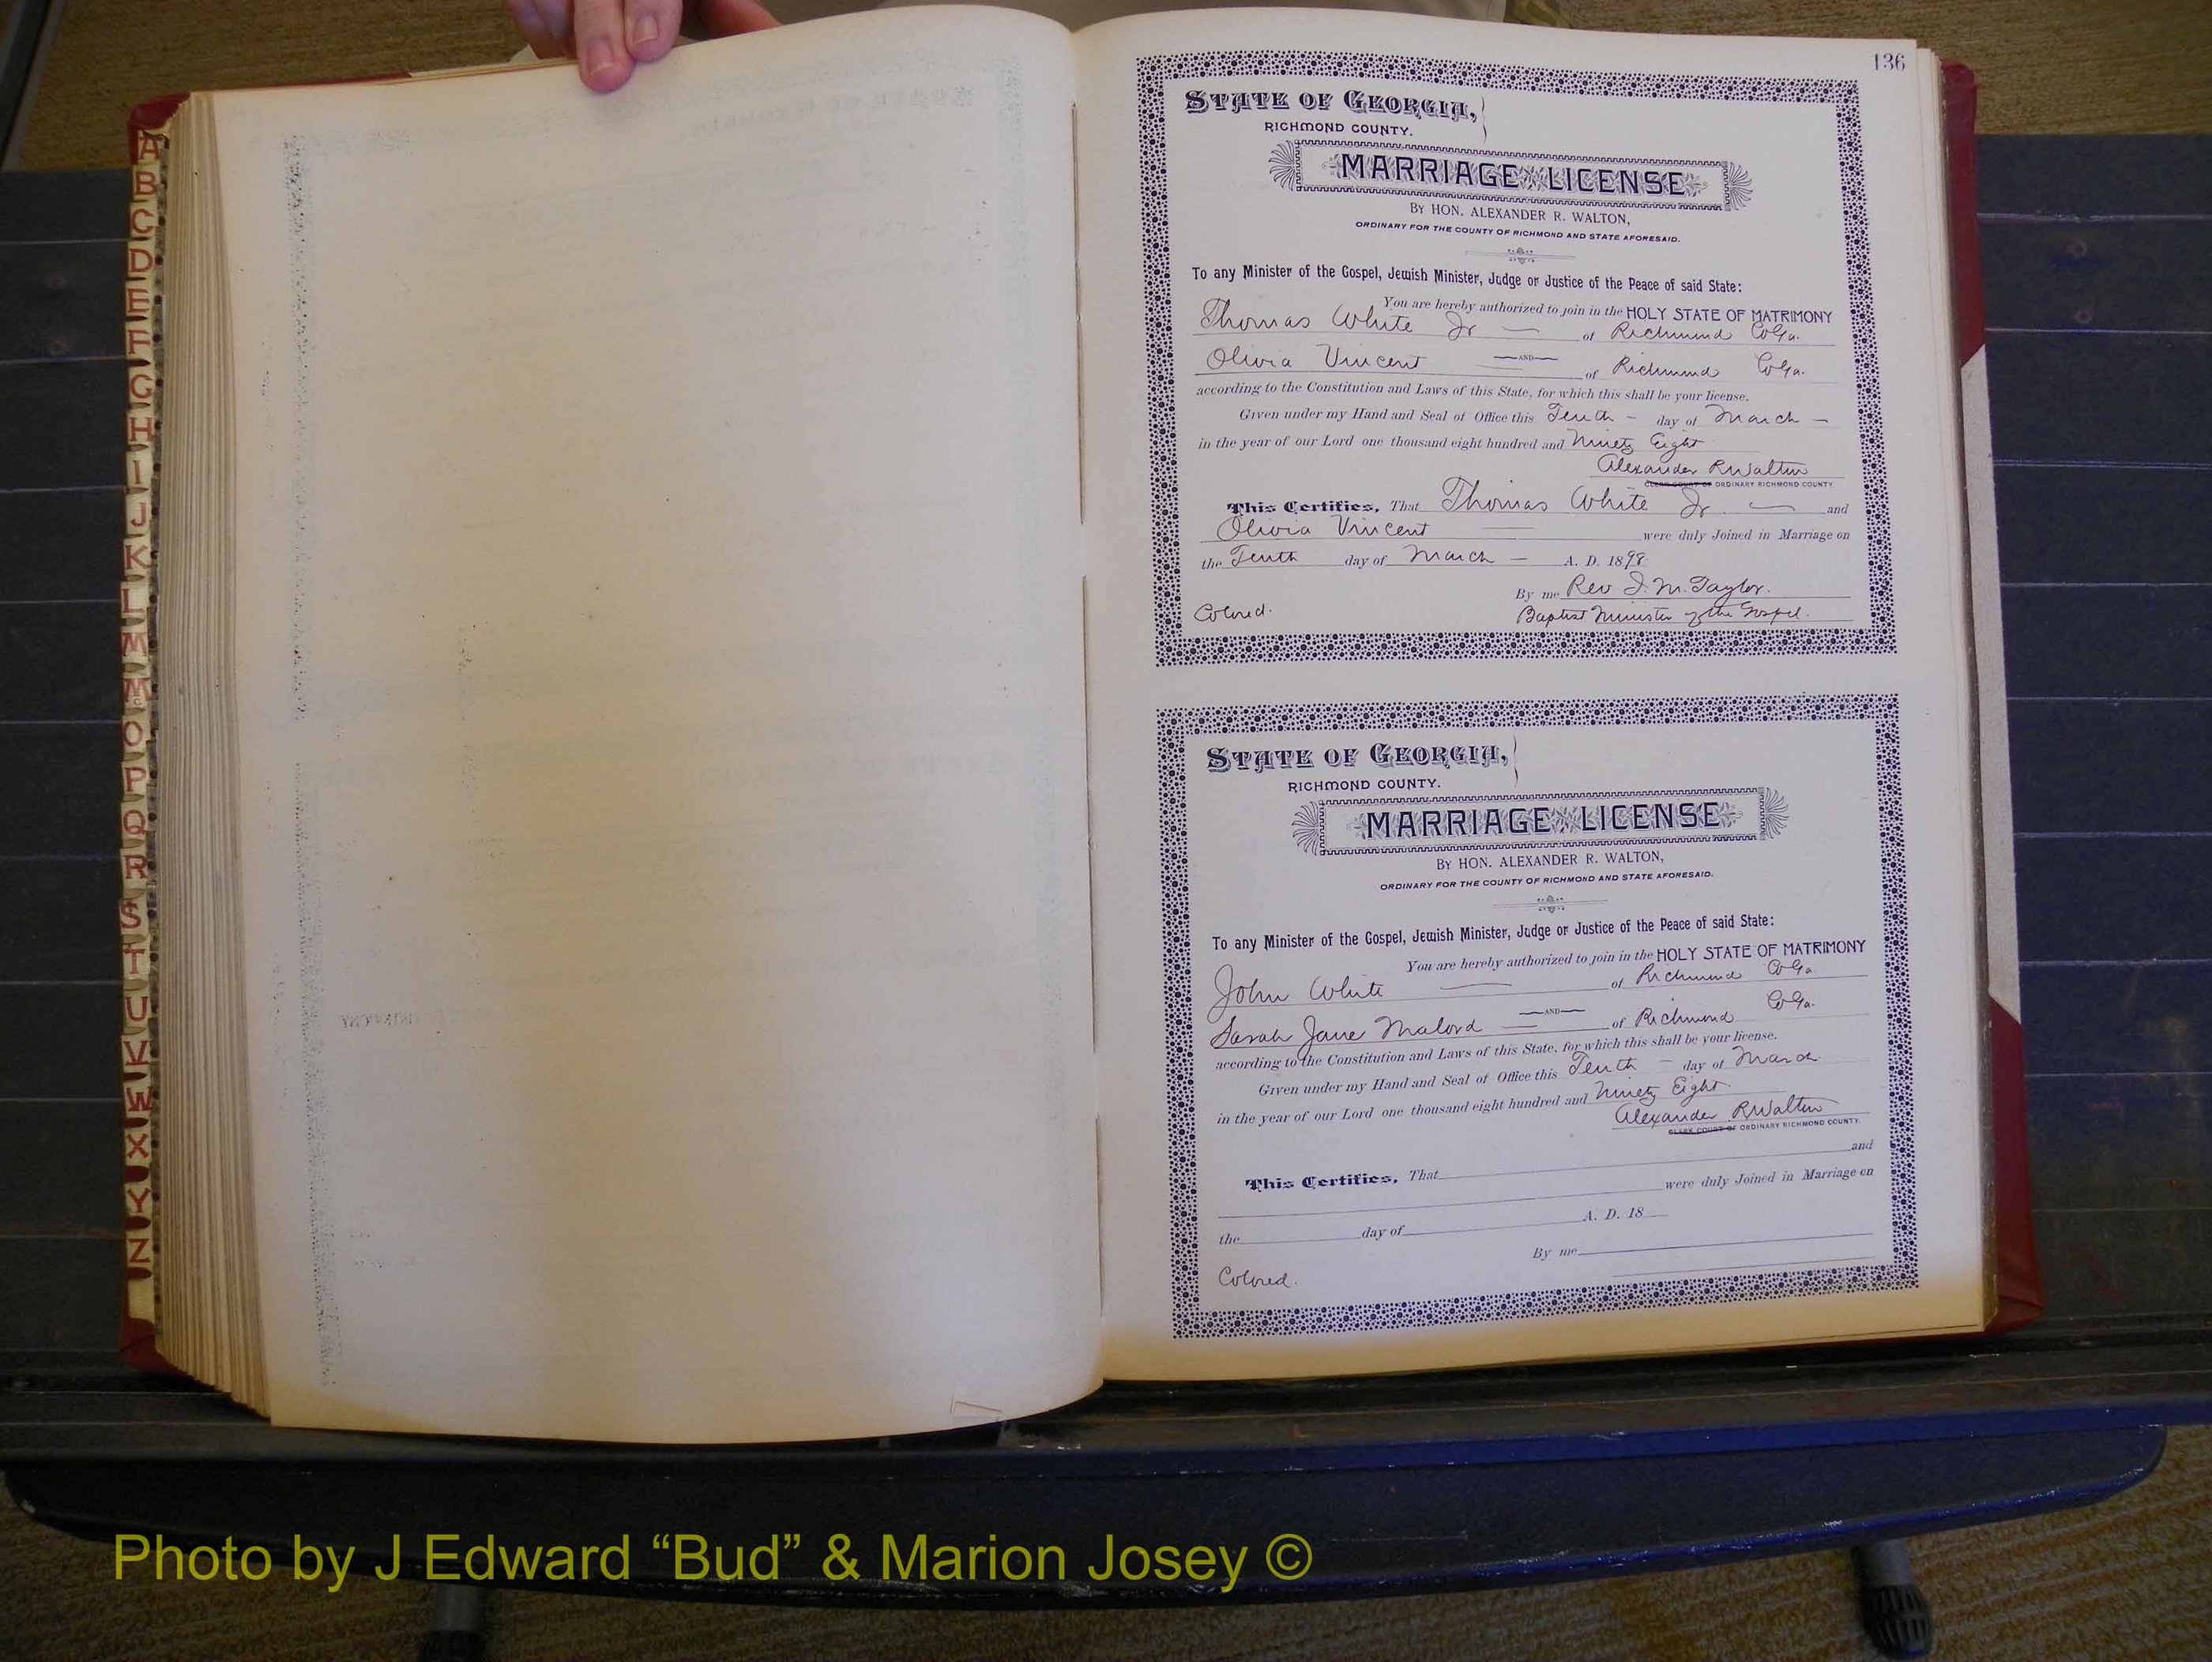 A
B
C
D
E
F
G
H
I
J
K
L
M
Mc
O
P
Q
R
S
T
U
V
W
X
Y
Z
136
STATE OF GEORGIA,
RICHMOND COUNTY.
MARRIAGE LICENSE
BY HON. ALEXANDER R. WALTON,
ORDINARY FOR THE COUNTY OF RICHMOND AND STATE AFORESAID.
To any Minister of the Gospel, Jewish Minister, Judge or Justice of the Peace of said State:
You are hereby authorized to join in the HOLY STATE OF MATRIMONY
Thomas White Jr — of Richmond Co Ga.
—AND—
Olivia Vincent of Richmond Co Ga.
according to the Constitution and Laws of this State, for which this shall be your license.
Given under my Hand and Seal of Office this Tenth – day of March –
in the year of our Lord one thousand eight hundred and Ninety Eight
Alexander R Walton
CLERK COURT OF ORDINARY RICHMOND COUNTY.
This Certifies, That Thomas White Jr. — and
Olivia Vincent — were duly Joined in Marriage on
the Tenth day of March — A. D. 1898
By me Rev I. M. Taylor.
Colored. Baptist Minister of the Gospel.
STATE OF GEORGIA,
RICHMOND COUNTY.
MARRIAGE LICENSE
BY HON. ALEXANDER R. WALTON,
ORDINARY FOR THE COUNTY OF RICHMOND AND STATE AFORESAID.
To any Minister of the Gospel, Jewish Minister, Judge or Justice of the Peace of said State:
You are hereby authorized to join in the HOLY STATE OF MATRIMONY
John White — of Richmond Co Ga.
—AND—
Sarah Jane Malord of Richmond Co Ga.
according to the Constitution and Laws of this State, for which this shall be your license.
Given under my Hand and Seal of Office this Tenth – day of March
in the year of our Lord one thousand eight hundred and Ninety Eight
Alexander R Walton
CLERK COURT OF ORDINARY RICHMOND COUNTY.
This Certifies, That and
were duly Joined in Marriage on
the day of A. D. 18
By me
Colored.
Photo by J Edward “Bud” & Marion Josey ©